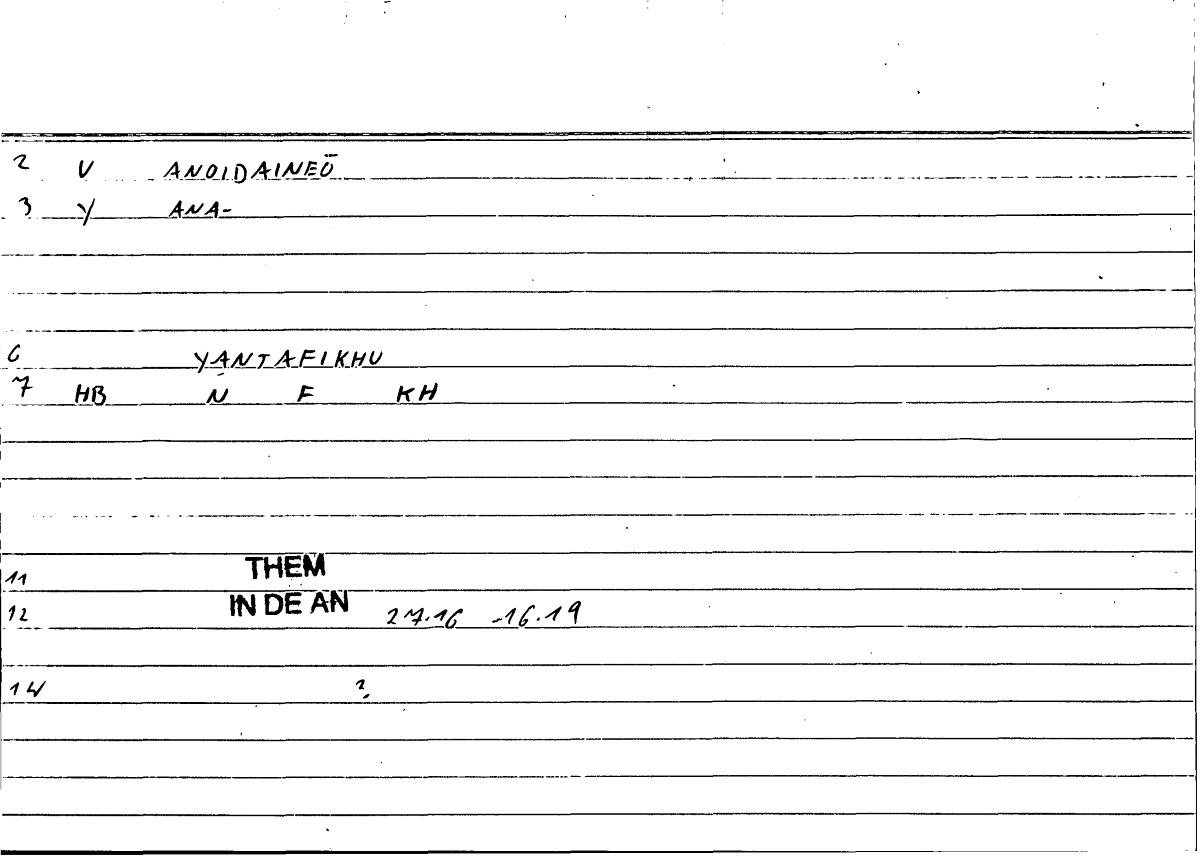 2 V ANOIDAINEŌ
3 Y ANA-
6 YANTAFIKHU
7 HB N F KH
11 THEM
12 IN DE AN 27.16 -16.19
14 ?